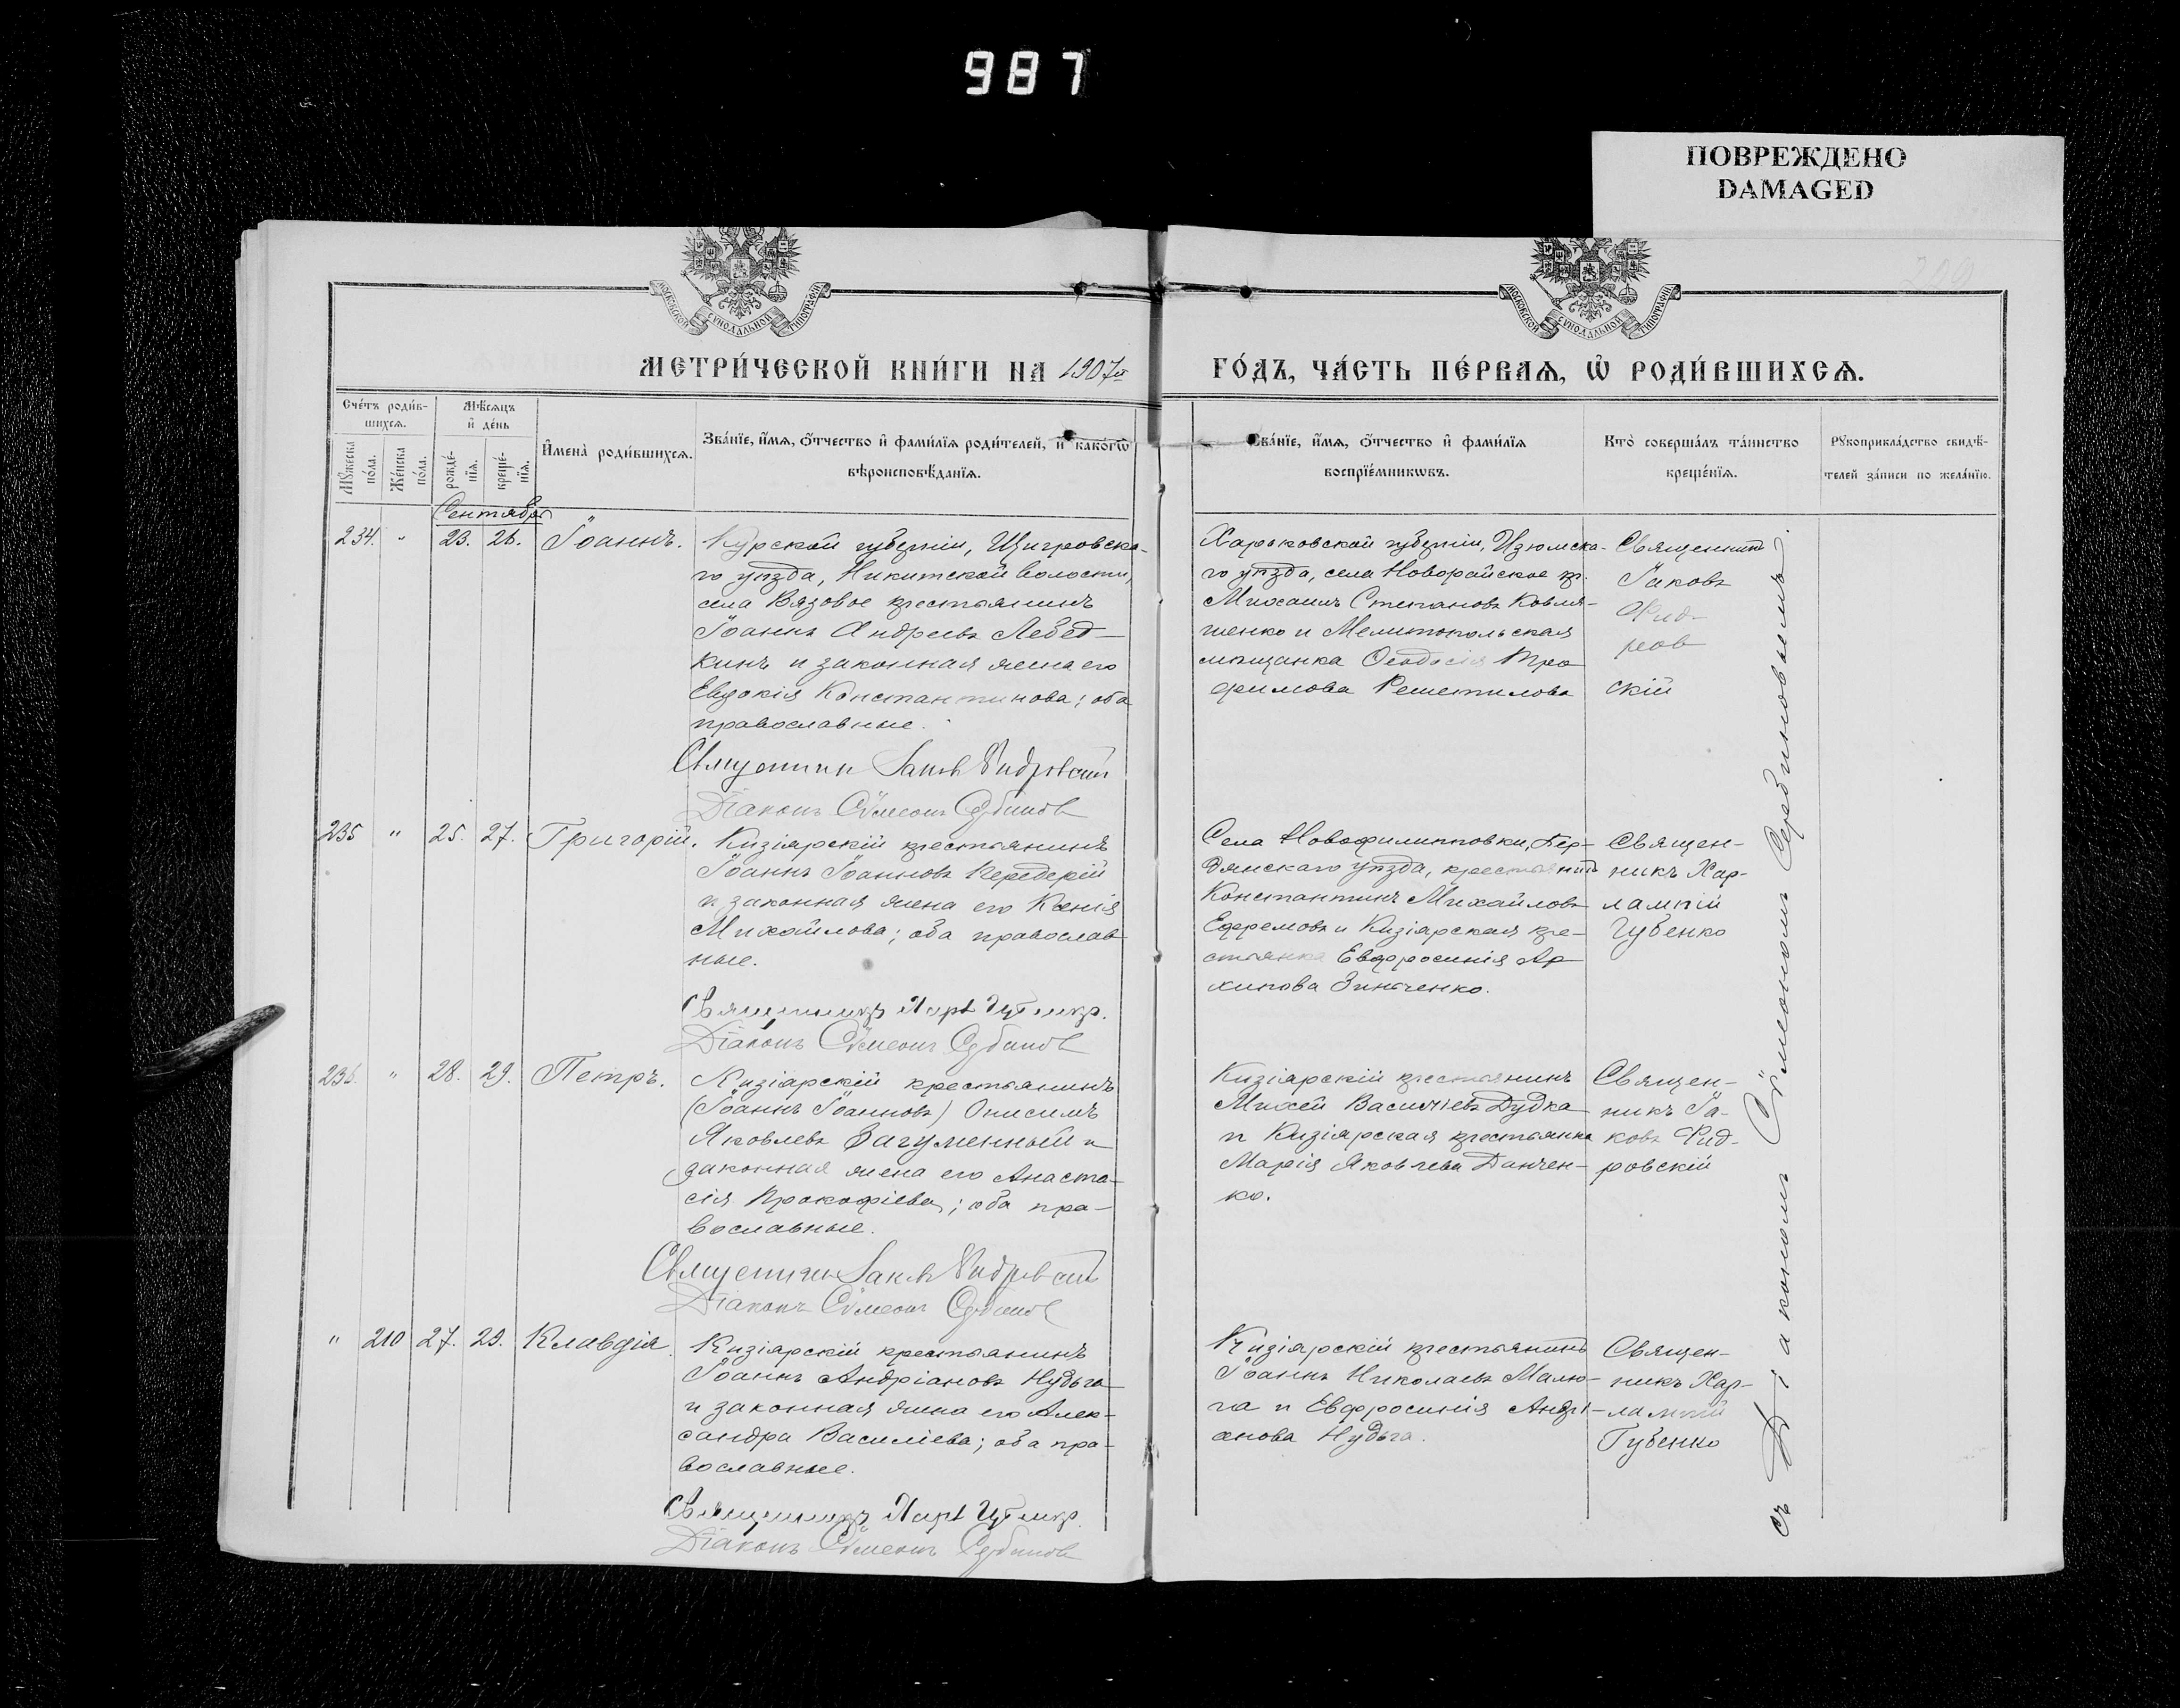 987
ПОВРЕЖДЕНО
DAMAGED
МОСКОВСКОЙ СѴНОДАЛЬНОЙ ТИПОГРАФІИ
МОСКОВСКОЙ СѴНОДАЛЬНОЙ ТИПОГРАФІИ
МЕТРИ́ЧЕСКОЙ КНИ́ГИ НА 1907й ГО́ДЪ, ЧА́СТЬ ПЕ́РВАѦ, Ѡ҆ РОДИ́ВШИХСѦ.
Сче́тъ роди́в-
шихсѧ.
Мѣ́сѧцъ
и҆ де́нь
Мꙋ́жеска
по́ла.
Же́нска
по́ла.
рожде́-
нїѧ.
креще́-
нїѧ.
И҆мена̀ роди́вшихсѧ.
Зва́нїе, и҆́мѧ, ѻ҆́тчество и҆ фами́лїѧ роди́телей, и҆ како́гѡ
вѣроисповѣ́данїѧ.
Зва́нїе, и҆́мѧ, ѻ҆́тчество и҆ фами́лїѧ
воспрїе́мникѡвъ.
Кто̀ соверша́лъ та́инство
креще́нїѧ.
Рꙋкоприкла́дство свидѣ́-
телей за́писи по жела́нїю.
Сентябрь
234. " 23. 26. Іоаннъ.
Курской губерніи, Щигровска-
го уѣзда, Никитской волости,
села Вязовое крестьянинъ
Іоаннъ Андреевъ Лебед-
кинъ и законная жена его
Евдокія Константинова; оба
православные.
Священникъ Іаковъ Фидровскій
Діаконъ Сѵмеонъ Сербиновъ
Харьковской губерніи, Изюмска-
го уѣзда, села Новорайское кр.
Михаилъ Степановъ Ковля-
шенко и Мелитопольская
мѣщанка Ѳеодосія Тро
фимова Решетилова
Священникъ
Іаковъ
Фид-
ров
скій
235 " 25. 27. Григорій.
Кизіярскій крестьянинъ
Іоаннъ Іоанновъ Передерій
и законная жена его Ксенія
Михайлова; оба православ
ные.
Священникъ Харл Губенко.
Діаконъ Сѵмеонъ Сербиновъ
Села Новофилипповки, Бер-
дянскаго уѣзда, крестьянинъ
Константинъ Михайловъ
Ефремовъ и Кизіярская кре-
стьянка Евфросинія Ар
хипова Зинченко.
Священ-
никъ Хар-
лампій
Губенко
236. " 28. 29. Петръ.
Кизіярскій крестьянинъ
(Іоаннъ Іоанновъ) Онисимъ
Яковлевъ Загуменный и
законная жена его Анаста-
сія Прокофіева; оба пра-
вославные.
Священникъ Іаковъ Фидровскій
Діаконъ Сѵмеонъ Сербиновъ
Кизіярскій крестьянинъ
Михей Василіевъ Дудка
и Кизіярская крестьянка
Марія Яковлева Данчен-
ко.
Священ-
никъ Іа-
ковъ Фид-
ровскій
" 210 27. 29. Клавдія.
Кизіярскій крестьянинъ
Іоаннъ Андріановъ Нудьга
и законная жена его Алек-
сандра Василіева; оба пра-
вославные.
Священникъ Харл Губенко.
Діаконъ Сѵмеонъ Сербиновъ
Кизіярскій крестьянинъ
Іоаннъ Николаевъ Малю-
га и Евфросинія Андрі-
анова Нудьга.
Священ-
никъ Хар-
лампій
Губенко
съ Діакономъ Сѵмеономъ Сербиновымъ.